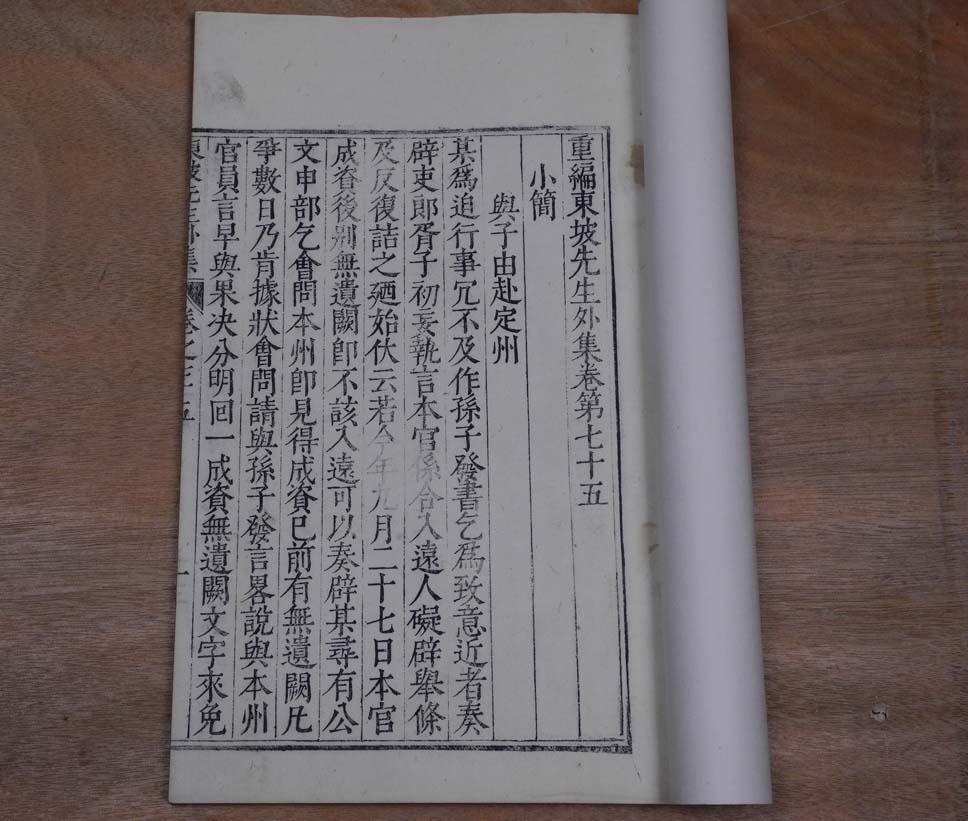 重編東坡先生外集卷第七十五
小簡
與子由赴定州
某爲追行事冗不及作孫子發書乞爲致意近者奏
辟吏郎胥子初妄執言本官係合入遠人礙辟舉條
及反復詰之廼始伏云若今年九月二十七日本官
成資後别無遺闕卽不該入遠可以奏辟某尋有公
文申部乞會問本州卽見得成資已前有無遺闕凡
爭數日乃肯據狀會問請與孫子發言畧說與本州
官員言早與果决分明回一成資無遺闕文字來免
東坡先生外集 卷之七十五 一